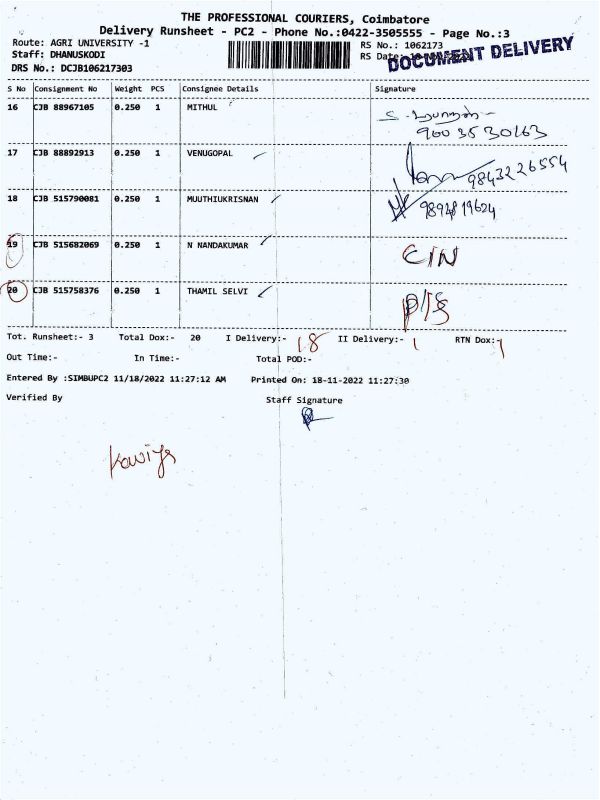 THE PROFESSIONAL COURIERS, Coimbatore
Delivery Runsheet - PC2 - Phone No.:0422-3505555 - Page No.:3
Route: AGRI UNIVERSITY -1
RS No.: 1062173
Staff: DHANUSKODI
RS Date:
DOCUMENT DELIVERY
DRS No.: DCJB106217303
S No Consignment No Weight PCS Consignee Details Signature
16 CJB 88967105 0.250 1 MITHUL
9003530163
17 CJB 88892913 0.250 1 VENUGOPAL
9843226554
18 CJB 515790081 0.250 1 MUUTHIUKRISNAN
9894819624
19 CJB 515682069 0.250 1 N NANDAKUMAR C/N
20 CJB 515758376 0.250 1 THAMIL SELVI
Tot. Runsheet:- 3 Total Dox:- 20 I Delivery:- 18 II Delivery:- 1 RTN Dox:- 1
Out Time:- In Time:- Total POD:-
Entered By :SIMBUPC2 11/18/2022 11:27:12 AM Printed On: 18-11-2022 11:27:30
Verified By Staff Signature
Kaviya